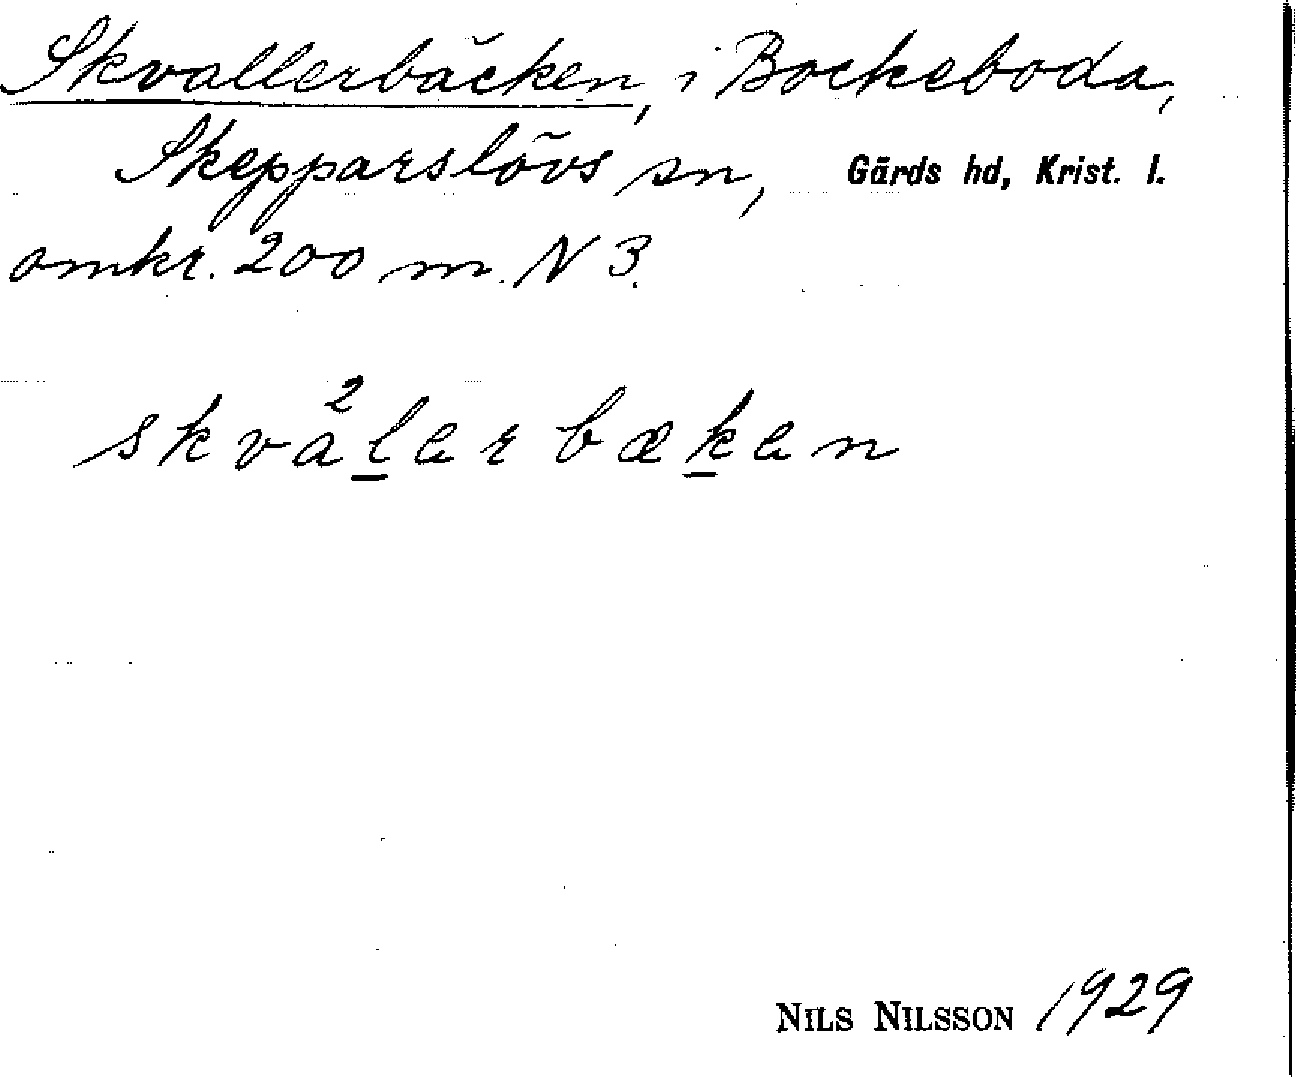 Skvallerbäcken, i Bockeboda,
Skepparslövs sn, Gärds hd, Krist. l.
omkr. 200 m. N 3.
skva²lerbæken
NILS NILSSON 1929